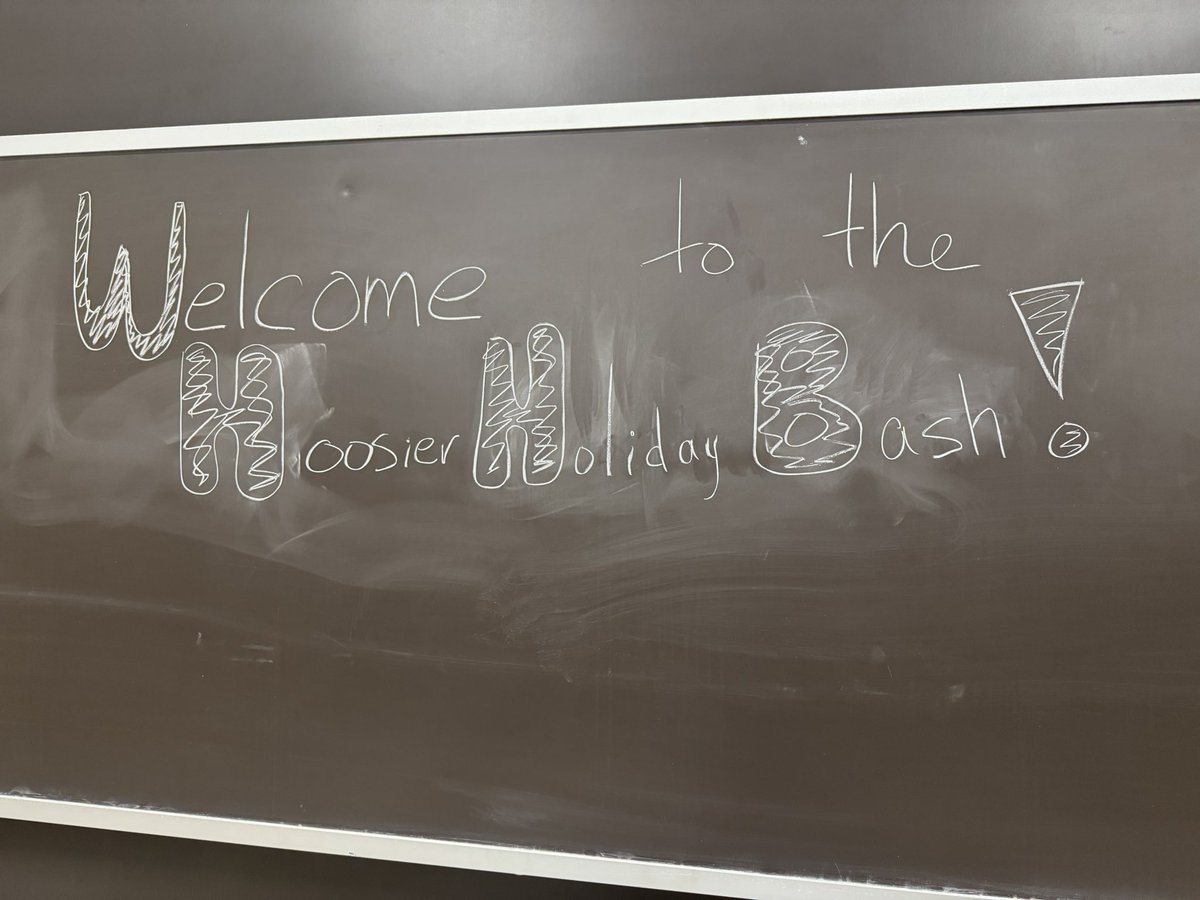 Welcome to the
Hoosier Holiday Bash!